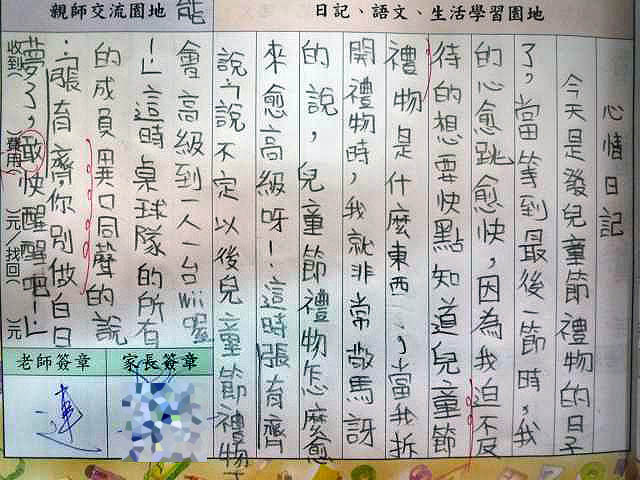 親師交流園地
日記、語文、生活學習園地
心情日記
今天是發兒童節禮物的日子
了,當等到最後一節時,我
的心愈跳愈快,因為我迫不反
待的想要快點知道兒童節
禮物是什麼東西…,當我拆
開禮物時,我就非常驚訝
的說,兒童節禮物怎麼愈
來愈高級呀!這時張有齊
說:說不定以後兒童節禮物
能會高級到一人一台Wii喔
!」這時桌球隊的所有
的成員異口同聲的說
:「張有齊,你別做白日
夢了,敢快醒醒吧!」
收到( )費用( )元/找回( )元
家長簽章
老師簽章